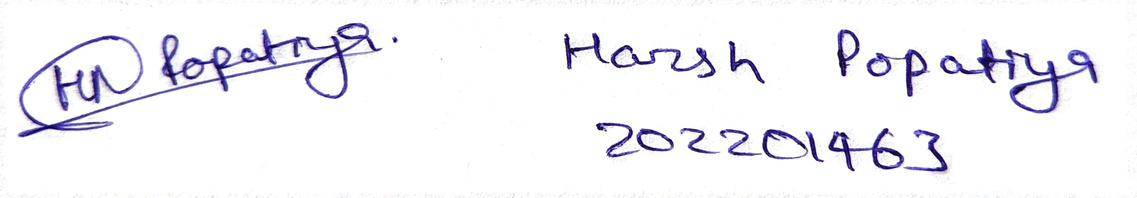 HN Popatiya.
Harsh Popatiya
202201463